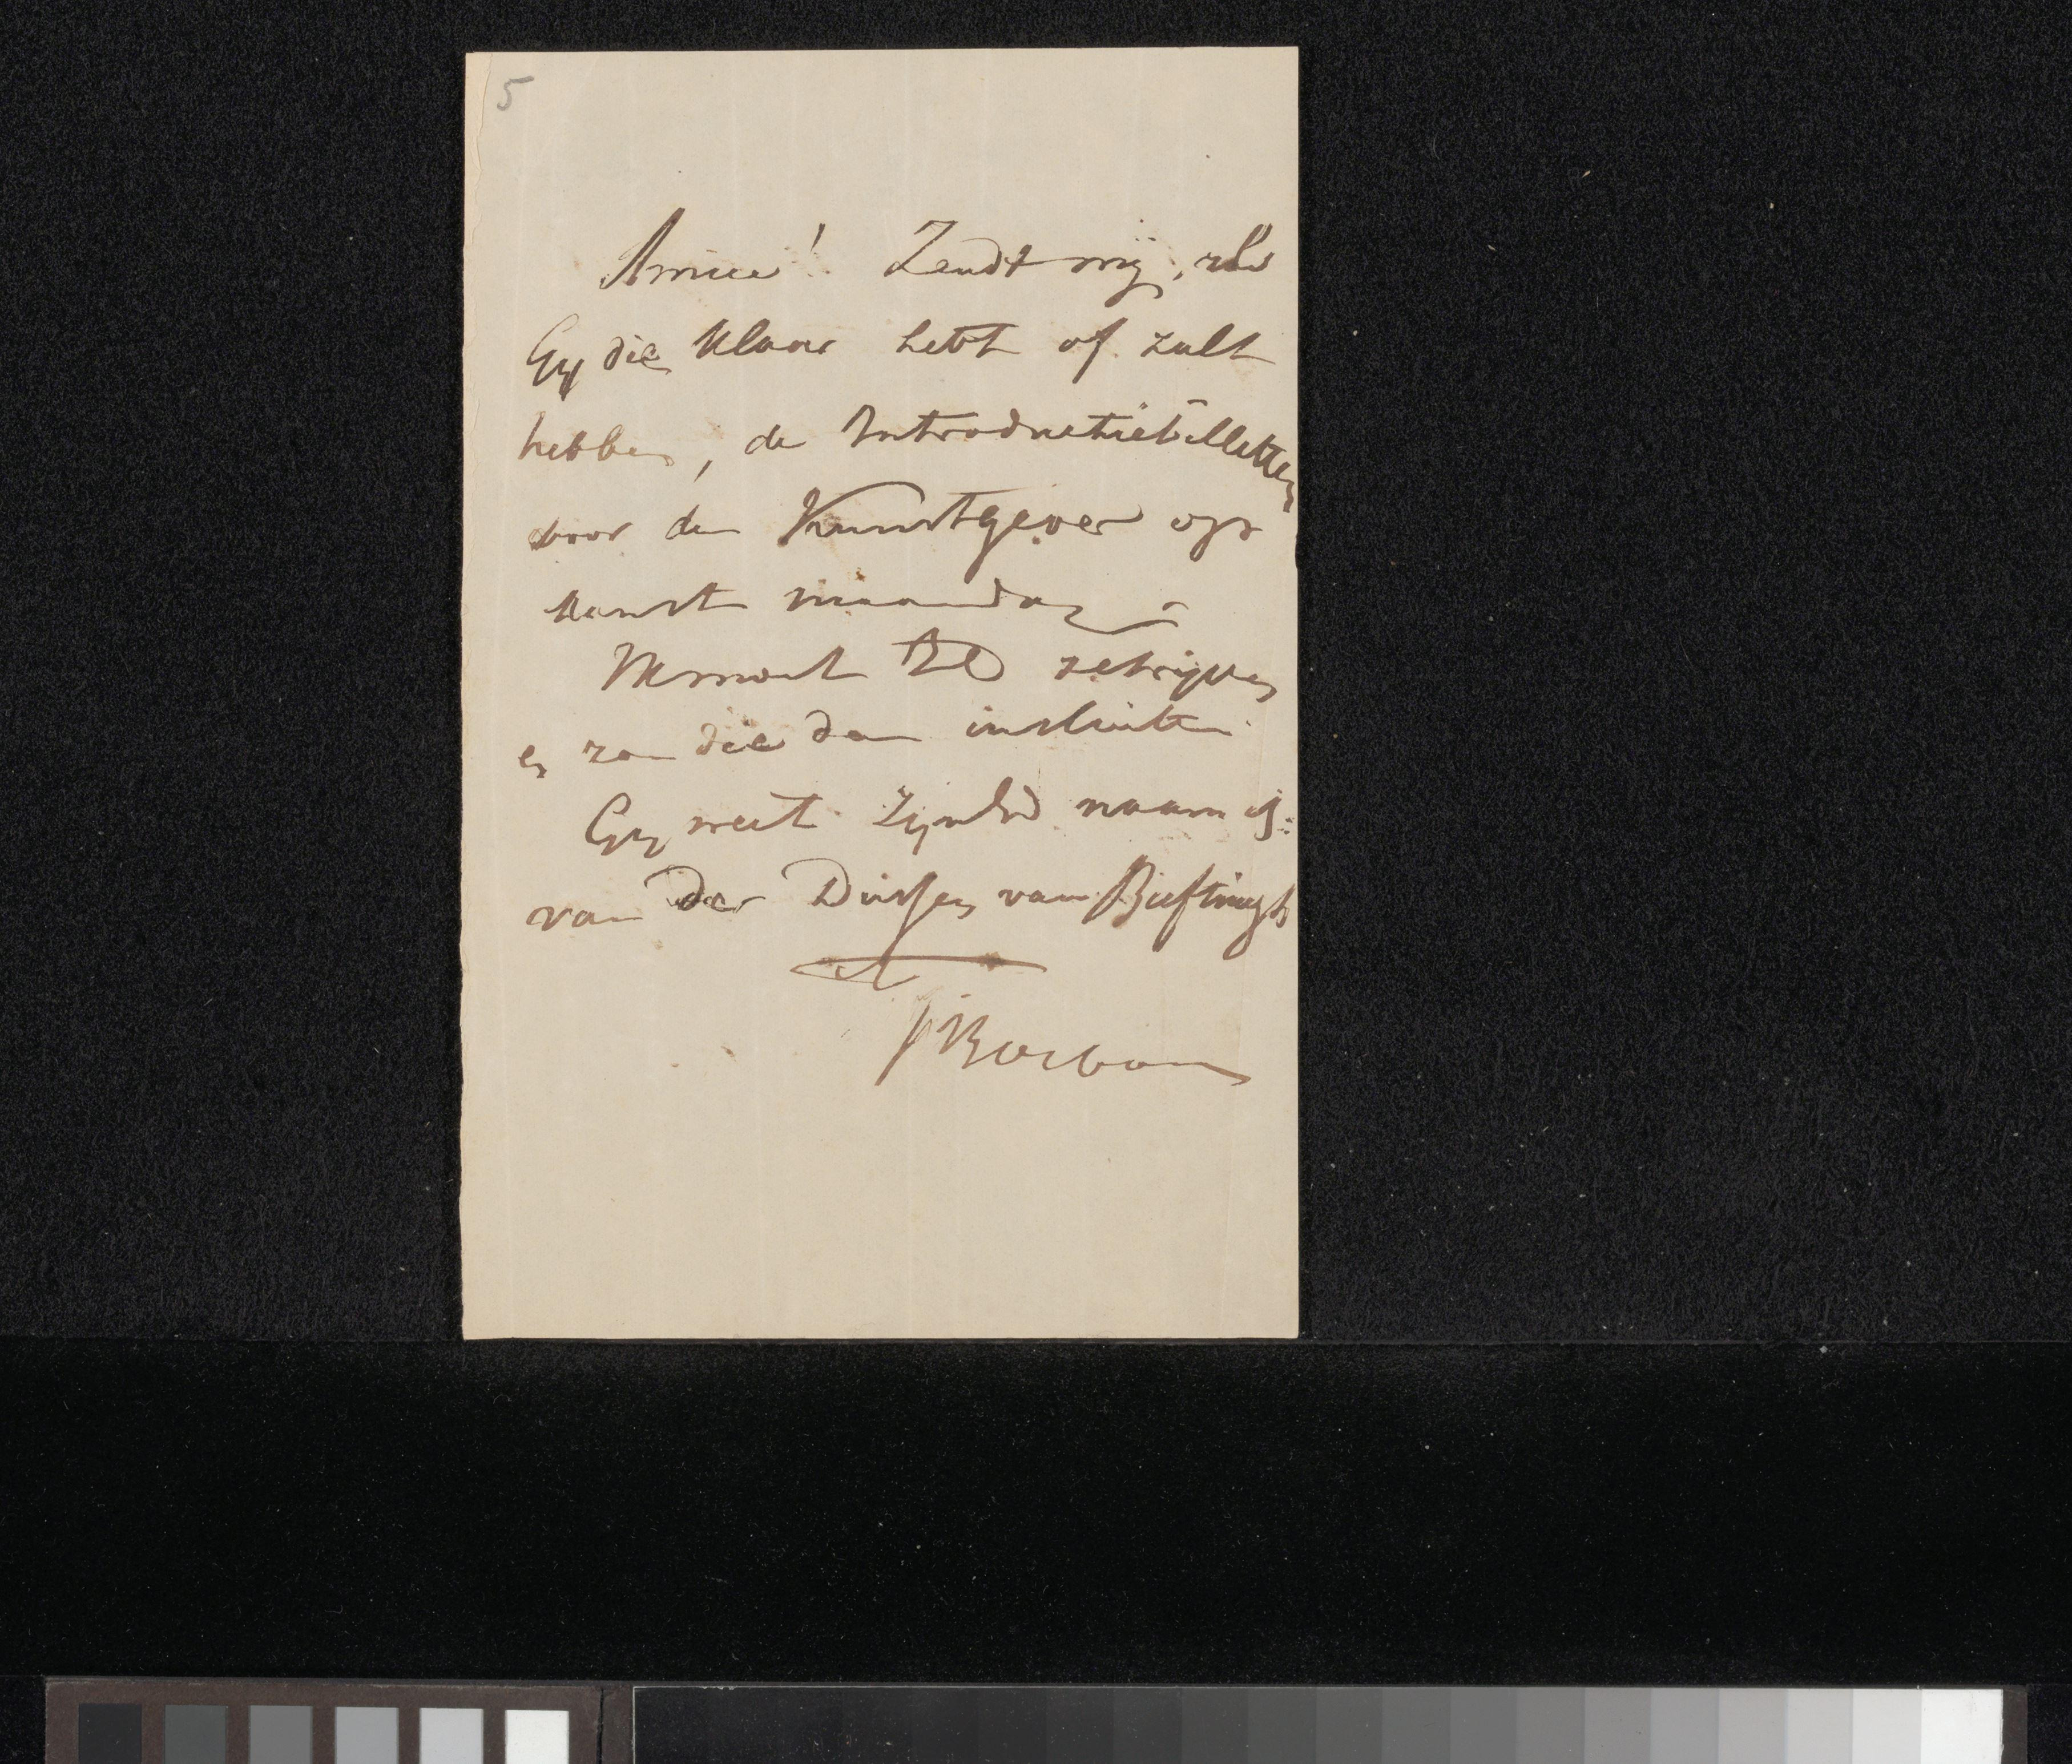 5
Amice! Zendt mij, als
Gij die klaar hebt of zult
hebben, de Introductiebilletten
voor den Kunstgever op
aanst maandag
moet ZEd schrijven
en zou die dan insluiten
Gij weet ZijnEd naam is:
van der Dussen van Beeftingh
JBosboom